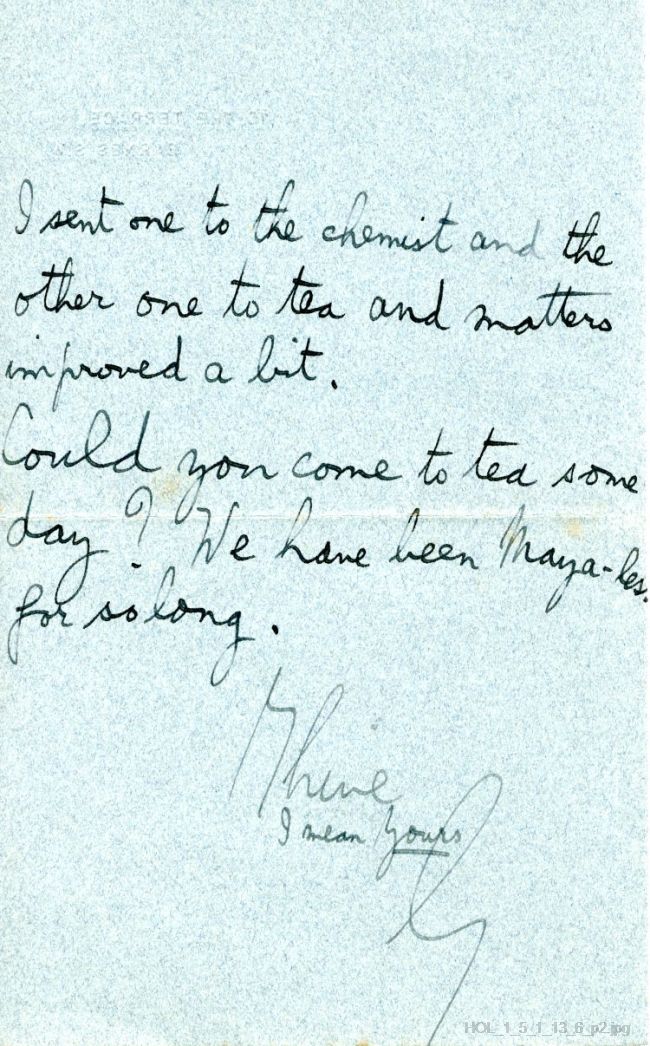 I sent one to the chemist and the
other one to tea and matters
improved a bit.
Could you come to tea some
day? We have been Maya-les.
for so long.
Thine
I mean yours
HOL_1_5_1_13_6_p2.jpg